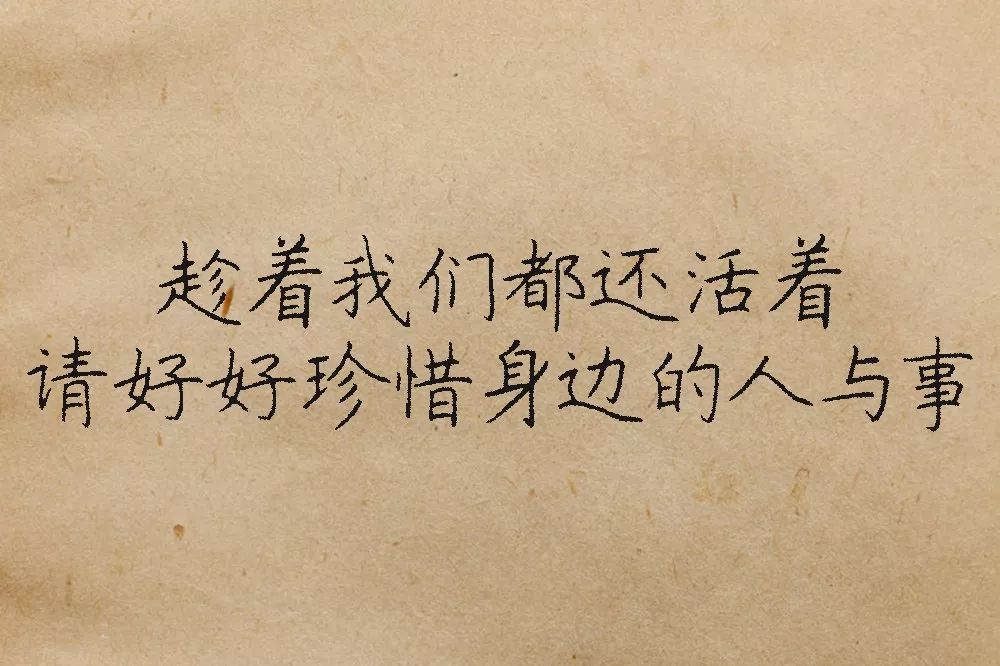 趁着我们都还活着
请好好珍惜身边的人与事